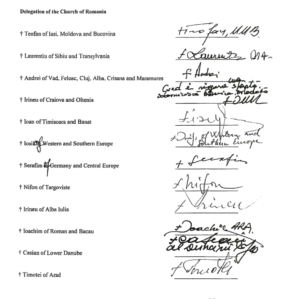 Delegation of the Church of Romania
† Teofan of Iasi, Moldova and Bucovina
† Laurentiu of Sibiu and Transylvania
† Laurentiu
† Andrei of Vad, Feleac, Cluj, Alba, Crisana and Maramures
† Andrei
† Irineu of Craiova and Oltenia
† Ioan of Timisoara and Banat
† Iosif of Western and Southern Europe
† Iosif of Western and
Southern Europe
† Serafim of Germany and Central Europe
† Serafim
† Nifon of Targoviste
† Nifon
† Irineu of Alba Iulia
† Irineu
† Ioachim of Roman and Bacau
† Ioachim
† Casian of Lower Danube
† Casian
al Dunării
† Timotei of Arad
† Timotei